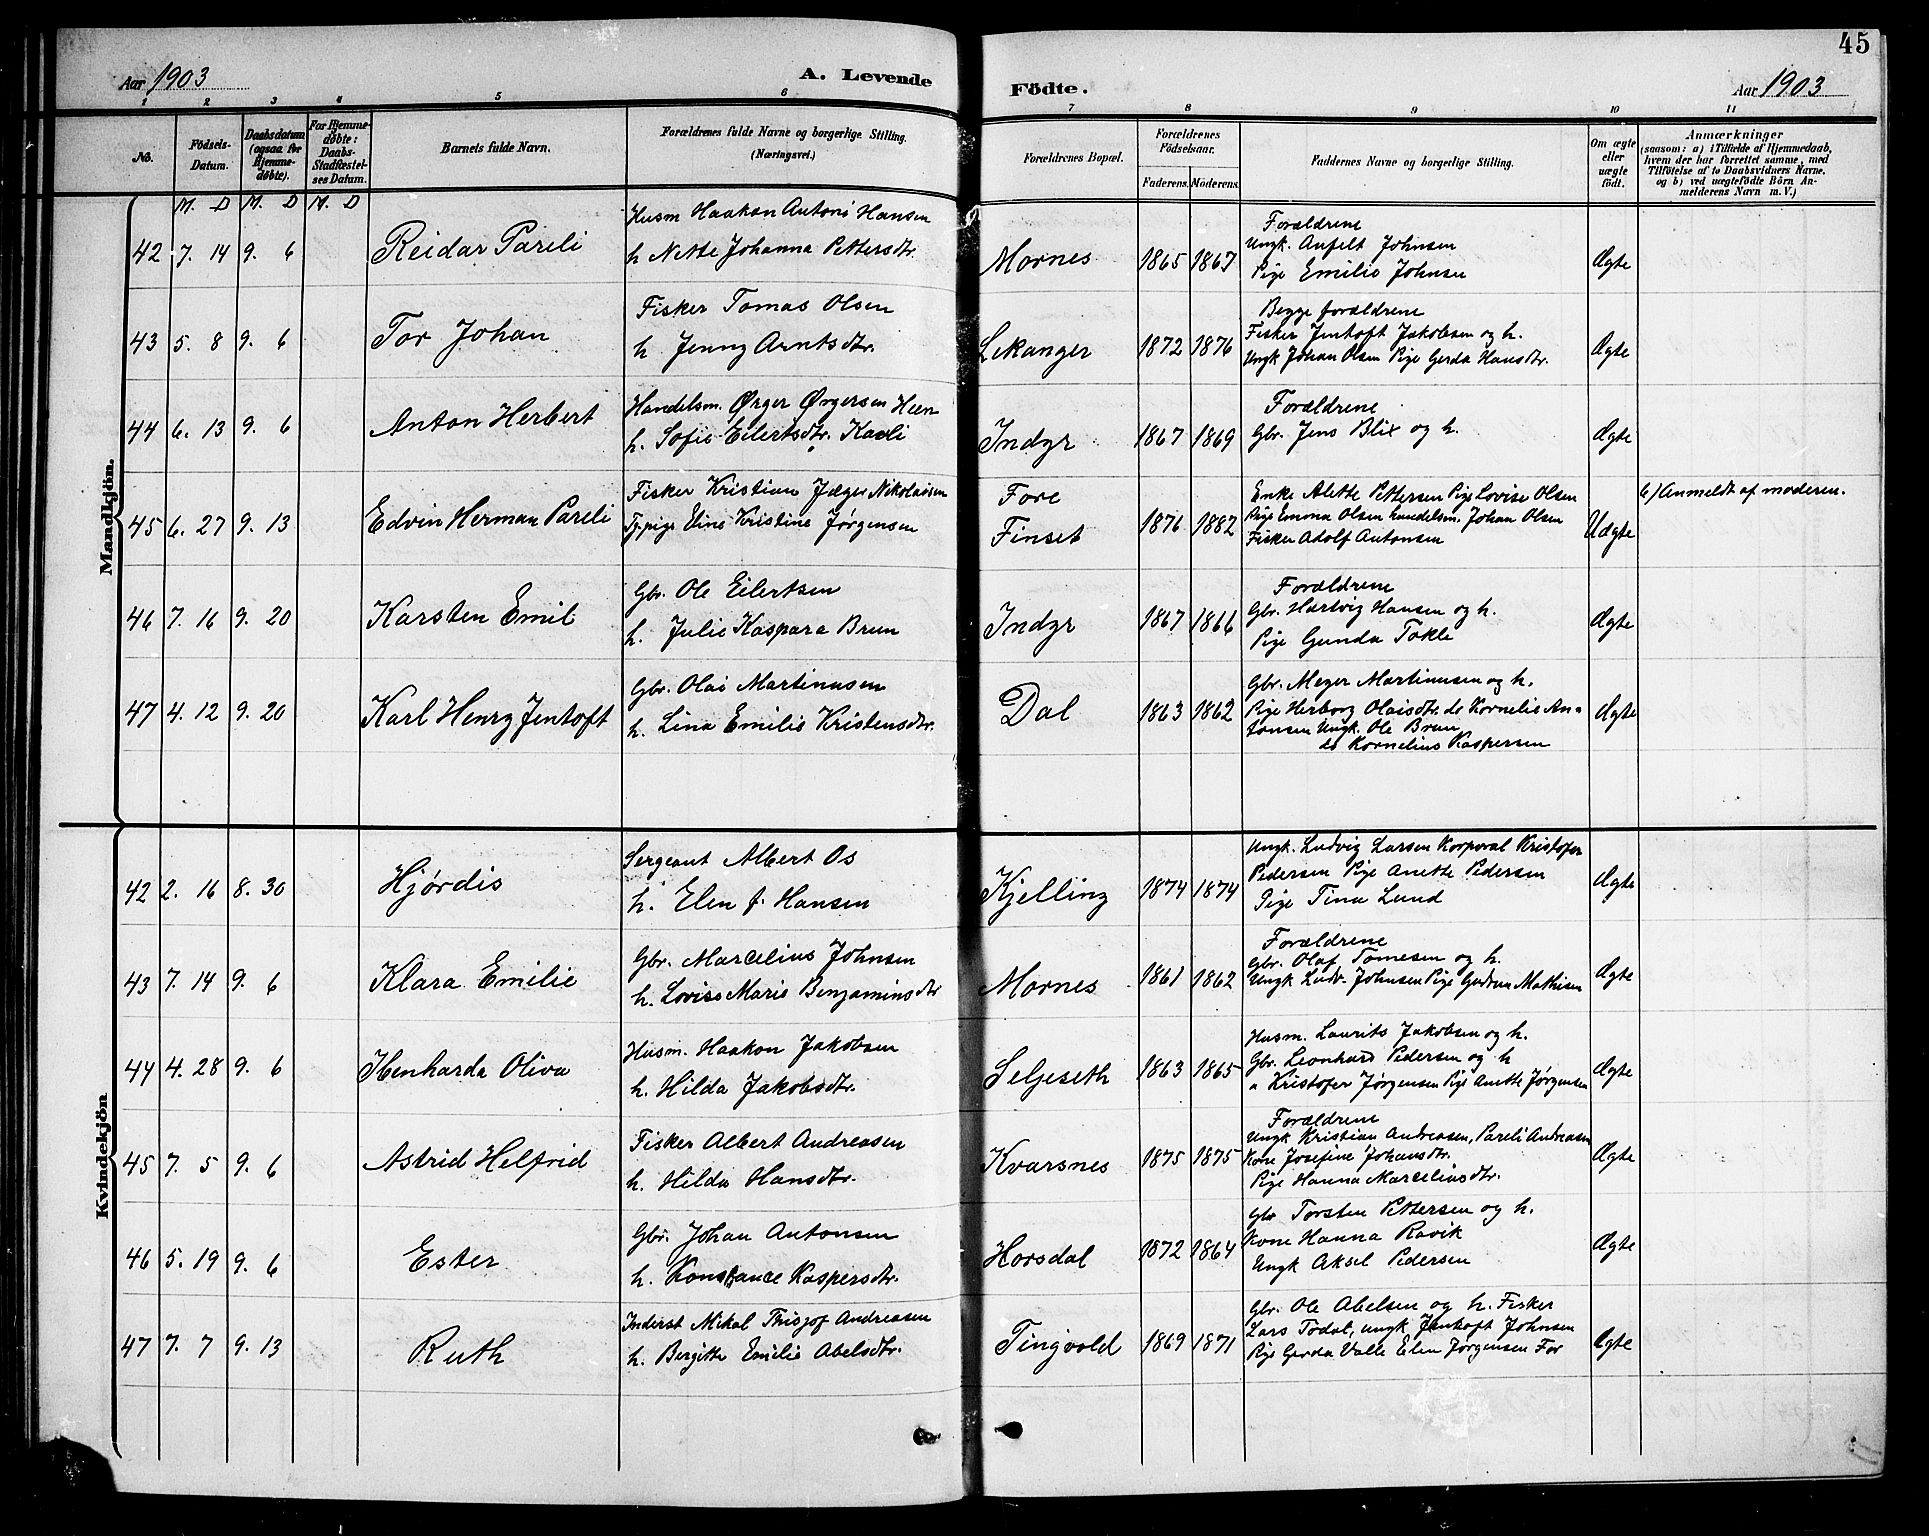 45
Aar 1903
A. Levende
Födte.
Aar 1903
1 2 3 4 5 6 7 8 9 10 11
No.
Födsels-Datum.
Daabsdatum (ogsaa for Hjemmedöbte).
For Hjemmedöbte: Daabs-Stadfæstelses Datum.
Barnets fulde Navn.
Forældrenes fulde Navne og borgerlige Stilling.
(Næringsvei.)
Forældrenes Bopæl.
Forældrenes Födselsaar.
Faderens. Möderens.
Faddernes Navne og borgerlige Stilling.
Om ægte eller uægte födt.
Anmærkninger
(saasom: a) i Tilfælde af Hjemmedaab, hvem der har forrettet samme, med Tilföielse af to Daabsvidners Navne, og b) ved uægtefödte Börn Anmelderens Navn m. V.)
M. D M. D M. D
Mandkjön.
42 7. 14 9. 6 Reidar Pareli
Husm Haakon Antoni Hansen
h Nette Johanna Pettersdtr.
Mornes 1865 1867
Forældrene
Ungk. Anfelt Johnsen
Pige Emilie Johnsen
Ægte
43 5. 8 9. 6 Tor Johan
Fisker Tomas Olsen
h Jenny Arntsdtr.
Lekanger 1872 1876
Begge forældrene
Fisker Jentoft Jakobsen og h.
Ungk Johan Olsen Pige Gerda Hansdtr.
Ægte
44 6. 13 9. 6 Anton Herbert
Handelsm. Ørger Ørgersen Heen
h. Sofie Eilertsdtr. Kavli
Indyr 1867 1869
Forældrene
Gbr. Jens Blix og h.
Ægte
45 6. 27 9. 13 Edvin Herman Pareli
Fisker Kristian Jæger Nikolaisen
Tj.pige Eline Kristine Jørgensen
Fore
Finset
1876 1882
Enke Alette Pettersen Pige Lovise Olsen
Pige Emma Olsen handelsm. Johan Olsen
Fisker Adolf Antonsen
Uægte
b) Anmeldt af moderen.
46 7. 16 9. 20 Karsten Emil
Gbr. Ole Eilertsen
h. Julie Kaspara Brun
Indyr 1867 1866
Forældrene
Gbr. Hartvig Hansen og h.
Pige Gunda Tokle
Ægte
47 4. 12 9. 20 Karl Henry Jentoft
Gbr. Olai Martinusen
h. Lina Emilie Kristensdtr.
Dal 1863 1862
Gbr. Meyer Martinusen og h.
Pige Herborg Olaisdtr. do Kornelie An=
tonsen Ungk. Ole Brun
do Kornelius Kaspersen
Ægte
Kvindekjön
42 2. 16 8. 30 Hjørdis
Sergeant Albert Os
h. Elen f. Hansen
Kjelling 1874 1874
Ungk. Ludvig Larsen Korporal Kristofer
Pedersen Pige Anette Pedersen
Pige Tina Lund
Ægte
43 7. 14 9. 6 Klara Emilie
Gbr. Marcelius Johnsen
h. Lovise Marie Benjaminsdtr
Mornes 1861 1862
Forældrene
Gbr. Olaf Tomesen og h.
Ungk Ludv. Johnsen Pige Gudrun Mathisen
Ægte
44 4. 28 9. 6 Henharda Oliva
Husm. Haakon Jakobsen
h. Hilda Jakobsdtr.
Seljeseth 1863 1865
Husm. Laurits Jakobsen og h.
Gbr. Leonhard Pedersen og h
" Kristofer Jørgensen Pige Anette Jørgensen
Ægte
45 7. 5 9. 6 Astrid Helfrid
Fisker Albert Andreasen
h. Hilda Hansdtr.
Kvarsnes 1875 1875
Forældrene
Ungk Kristian Andreasen, Pareli Andreasen
Kone Josefine Johansdtr.
Pige Hanna Marceliusdtr.
Ægte
46 5. 19 9. 6 Ester
Gbr. Johan Antonsen
h. Konstance Kaspersdtr.
Horsdal 1872 1864
Gbr Torsten Pettersen og h.
Kone Hanna Ravik
Ungk Aksel Pedersen
Ægte
47 7. 7 9. 13 Ruth
Inderst Mikal Thisjof Andreasen
h. Bergitte Emilie Abelsdtr.
Tingvold 1869 1871
Gbr. Ole Abelsen og h. Fisker
Lars Todal, ungk Jentoft Johnsen
Pige Gerda Valle Elen Jørgensen For
Ægte